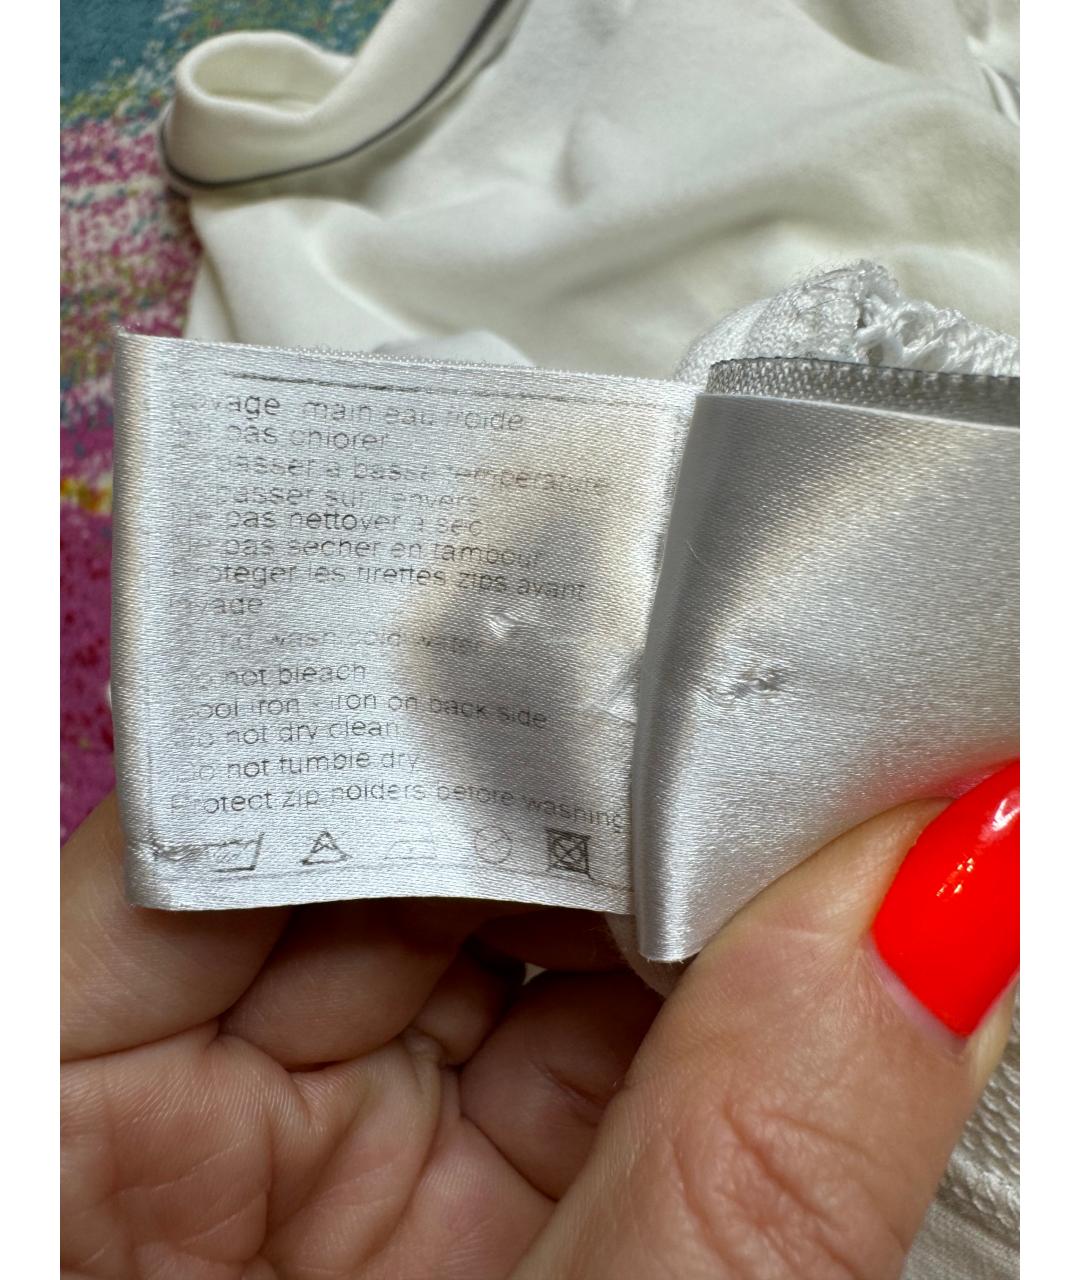 main eau froide
pas chlorer
basse température
sur l'envers
pas nettoyer à sec
pas sécher en tambour
Protéger les tirettes zips avant
lavage
wash cold water
Do not bleach
Cool iron - iron on back side
Do not dry clean
Do not tumble dry
Protect zip holders before washing